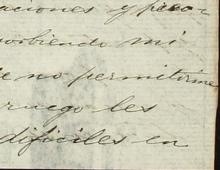 aciones y preo-
sorbiendo mi
e no permitirme
ruego les
dificiles en